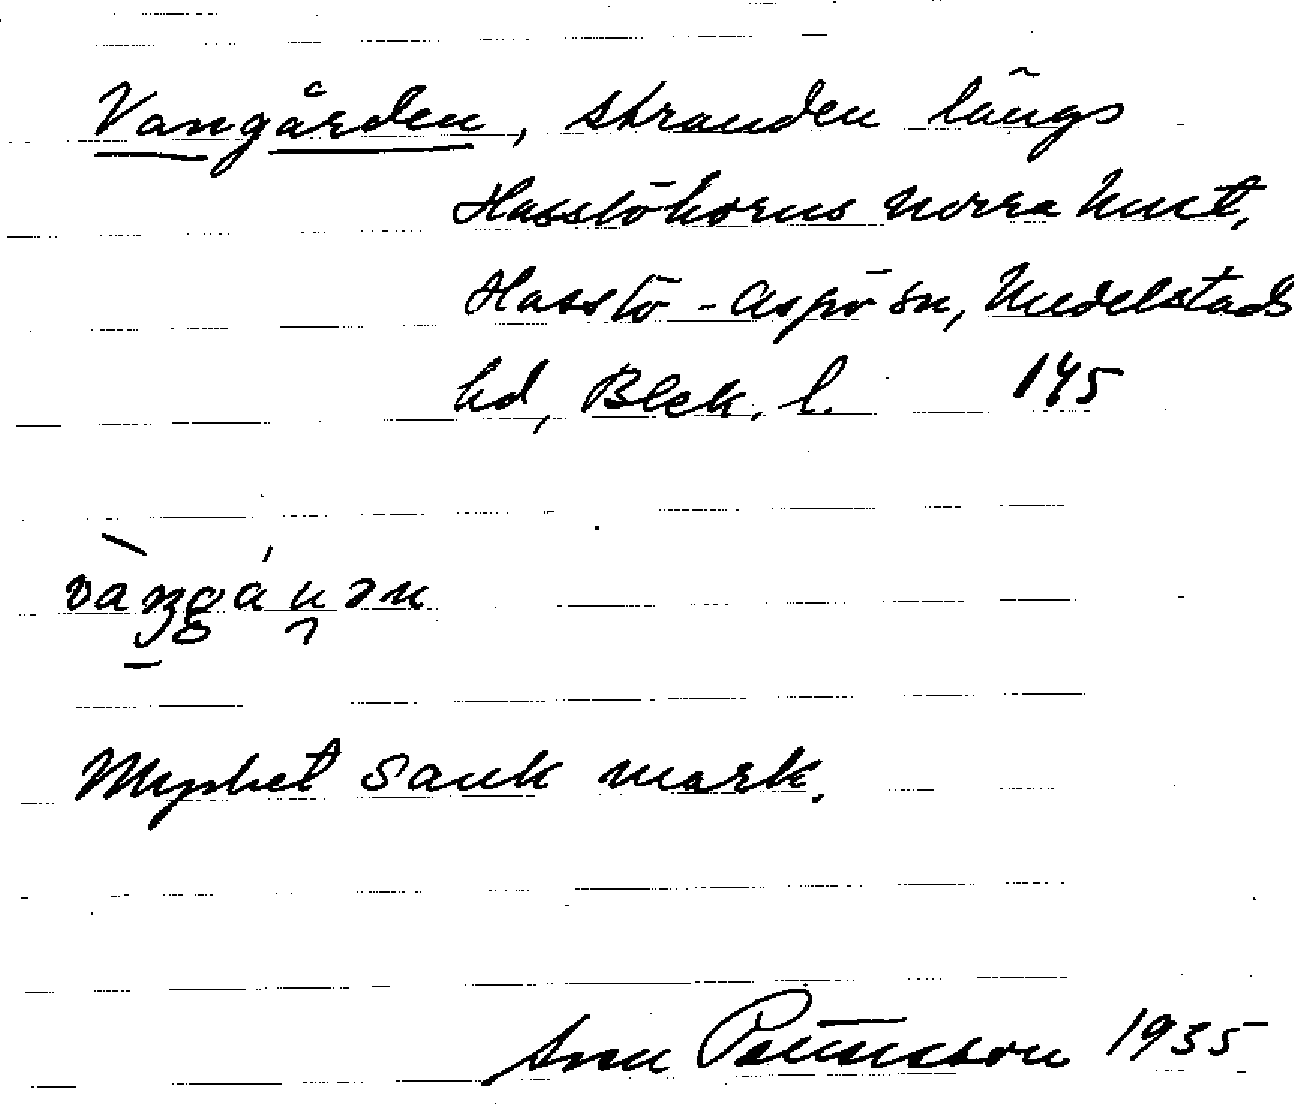 Vangården, stranden längs
Hasslöhorns norra kust,
Hasslö - Aspö sn, Medelstads
hd, Blek. l. 145
Mycket sank mark.
Pettersson 1935